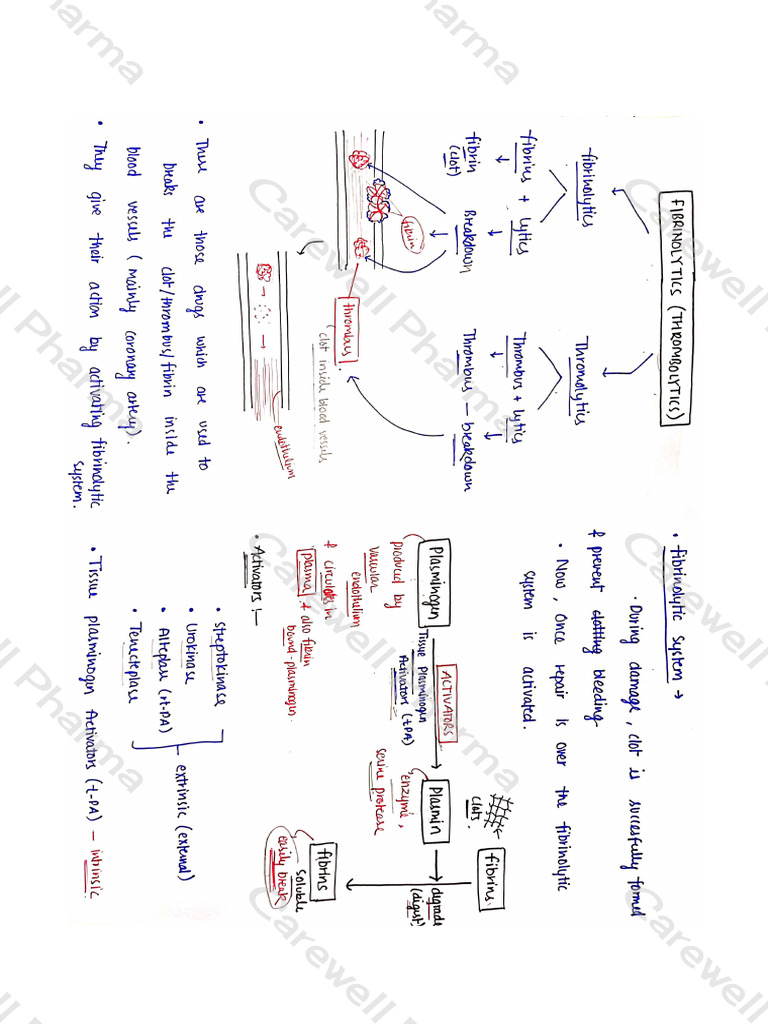 FIBRINOLYTICS (THROMBOLYTICS)
fibrinolytics
Thromolytics
fibrins + lytics
Thrombus + lytics
fibrin Breakdown
(clot)
Thrombus – breakdown
fibrin
thrombus
(clot inside blood vessels
endothelium
• These are those drugs which are used to
breaks the clot/thrombus/fibrin inside the
blood vessels (mainly coronary artery).
• They give their action by activating fibrinolytic
system.
• fibrinolytic system →
• During damage, clot is succesfully formed
& prevent clotting bleeding
• Now, once repair is over the fibrinolytic
system is activated.
clots.
fibrins.
Plasminogen
ACTIVATORS
Tissue Plasminogen
Activators (tPA)
Plasmin
degrade
(digust)
produced by
vascular
endothelium
& circulates in
plasma + also fibrin
bound-plasminogen.
enzyme,
serine protease
fibrins
soluble
easily break
• Activators :-
• Streptokinase
• Urokinase
• Alteplase (rt-PA)
• Tenecteplase
extrinsic (external)
• Tissue plasminogen Activators (t-PA) – intrinsic
Carewell Pharma